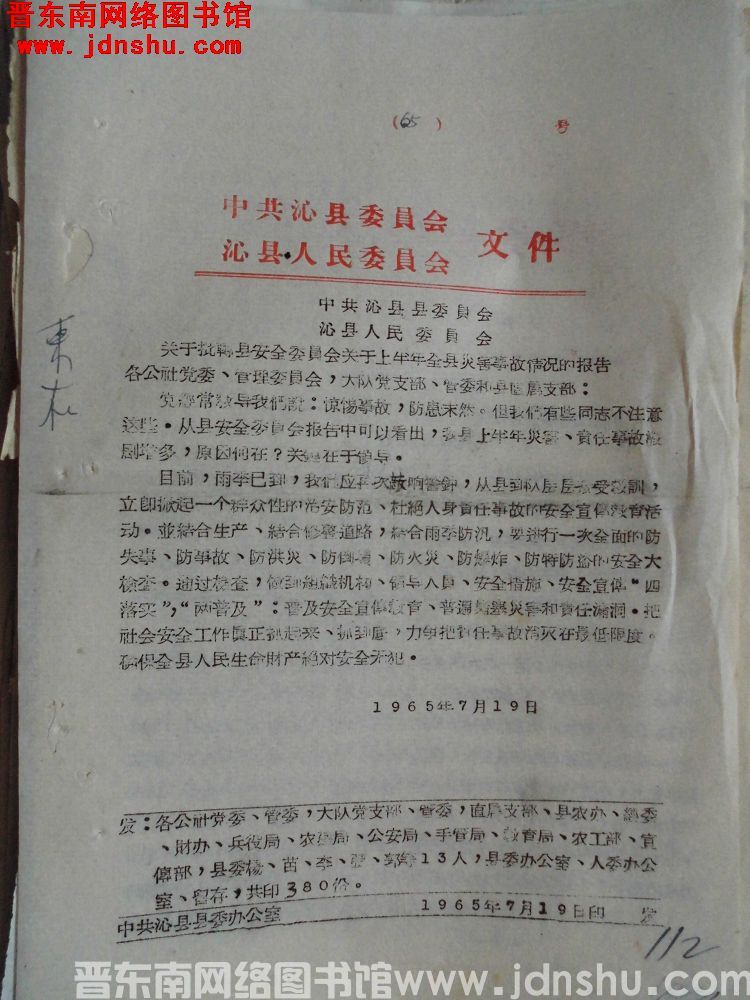 晋东南网络图书馆
www.jdnshu.com
(65) 号
中共沁县委員会
沁县人民委員会 文件
中共沁县县委員会
沁县人民委員会
关于批轉县安全委員会关于上半年全县灾害事故情况的报告
各公社党委、管理委員会，大队党支部、管委和县直属支部：
党經常教导我們說：惊惕事故，防患未然。但我們有些同志不注意
这些。从县安全委員会报告中可以看出，我县上半年灾害、責任事故
剧增多，原因何在？关鍵在于領导。
目前，雨季已到，我們应再次敲响警鈡，从县到队层层接受教訓，
立即掀起一个群众性的治安防范、杜絕人身責任事故的安全宣傳教育活
动。並結合生产、結合修整道路，結合雨季防汛，要进行一次全面的防
失事、防事故、防洪灾、防倒塌、防火灾、防爆炸、防特防盜的安全大
檢查。通过檢查，做到組織机构、領导人員、安全措施、安全宣傳“四
落实”，“两普及”：普及安全宣傳教育、普遍堵塞灾害和責任漏洞。把
社会安全工作真正抓起来、抓到底，力争把責任事故消灭在最低限度。
确保全县人民生命財产絕对安全无犯。
1965年7月19日
发：各公社党委、管委，大队党支部、管委，直属支部、县农办、 委
、財办、兵役局、农 局、公安局、手管局、教育局、农工部、宣
傳部，县委楊、苗、李、張、郭等13人，县委办公室、人委办公
室、留存，共印380份。
中共沁县县委办公室 1965年7月19日印 发
112
晋东南网络图书馆www.jdnshu.com